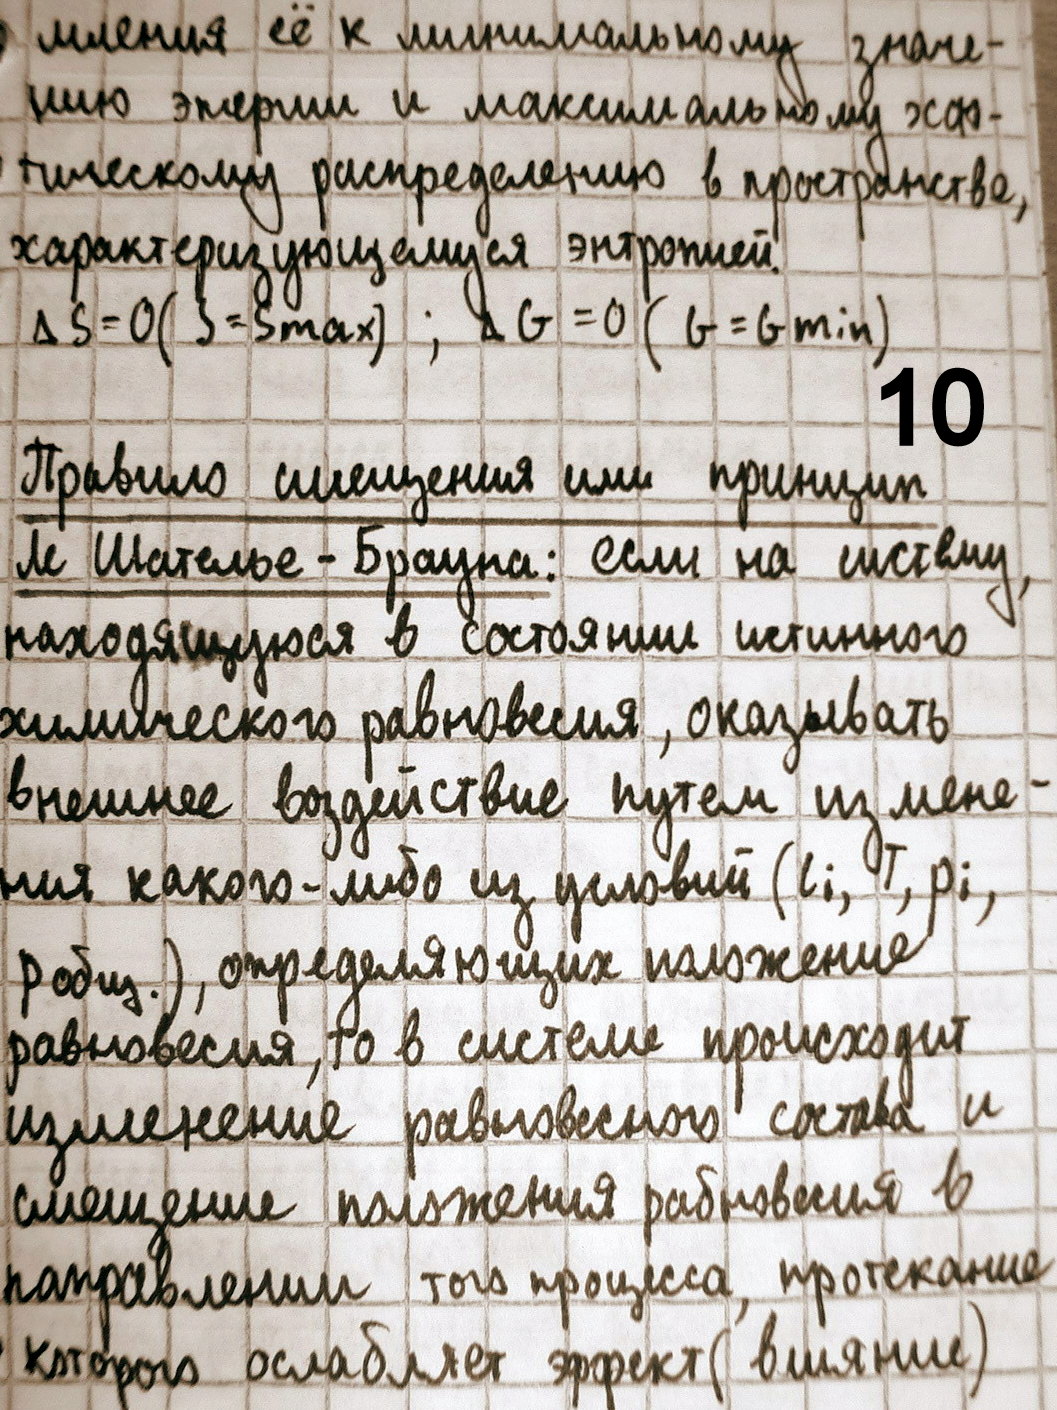 мления её к минимальному значе-
нию энергии и максимальному хао-
тическому распределению в пространстве,
характеризующемуся энтропией.
ΔS=0(S=Smax); ΔG=0(G=Gmin)
10
Правило смещения или принцип
Ле Шателье-Брауна: если на систему,
находящуюся в состоянии истинного
химического равновесия, оказывать
внешнее воздействие путем измене-
ния какого-либо из условий (Ci, T, pi,
pобщ.), определяющих положение
равновесия, то в системе происходит
изменение равновесного состава и
смещение положения равновесия в
направлении того процесса, протекание
которого ослабляет эффект(влияние)